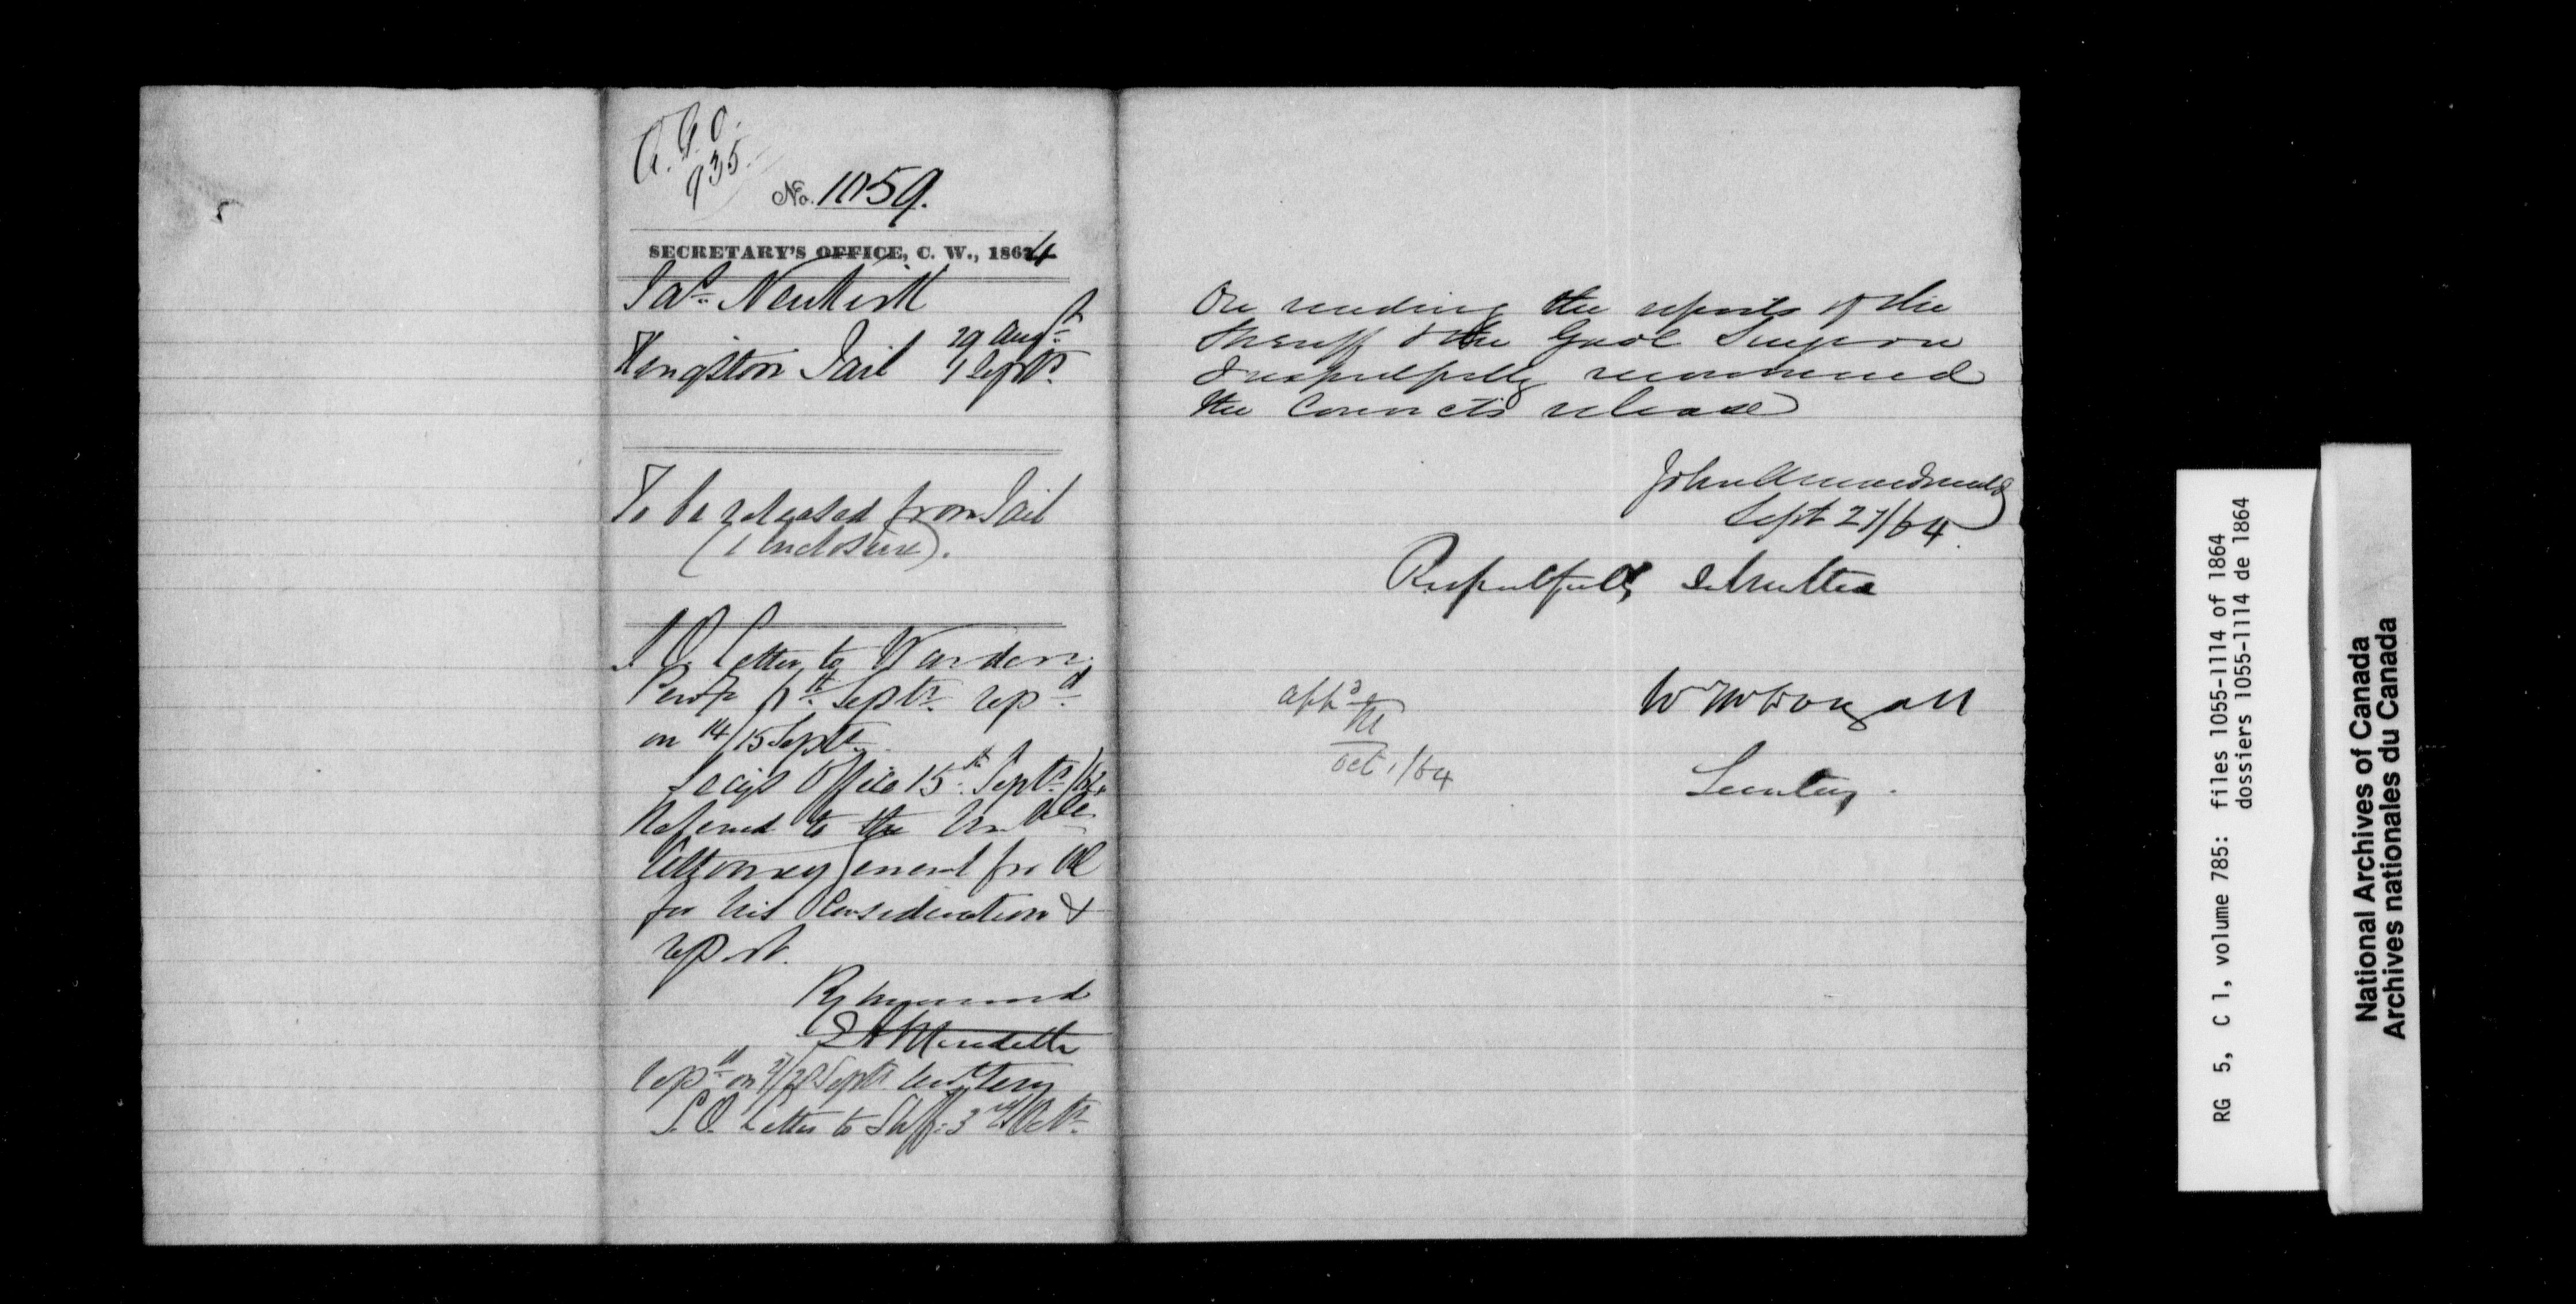 A. G. O.
935.
No. 1059.
SECRETARY'S OFFICE, C. W., 1864
Jas. Neukirk
Kingston Jail 29 Augt.
1 Septr.
To be released from Jail
(1 enclosure).
S. O. Letter to Warden
Penty Septr. repd.
on 14/15 Septr.
Secy's Office 15th Septr./64
Referred to the Honble
Attorney General for UC
for his Consideration &
report.
By command
E A Meredith
repd. on 27/28 Septr.
S. O. Letter to Shff: 3rd Octr.
On reading the reports of the
Sheriff & the Gaol Surgeon
I respectfully recommend
the Convicts release
John A Macdonald
Sept 27/64
Respectfully submitted
Wm McDougall
Secretary.
appd
M
Oct 1/64
RG 5, C 1, volume 785: files 1055-1114 of 1864
dossiers 1055-1114 de 1864
National Archives of Canada
Archives nationales du Canada